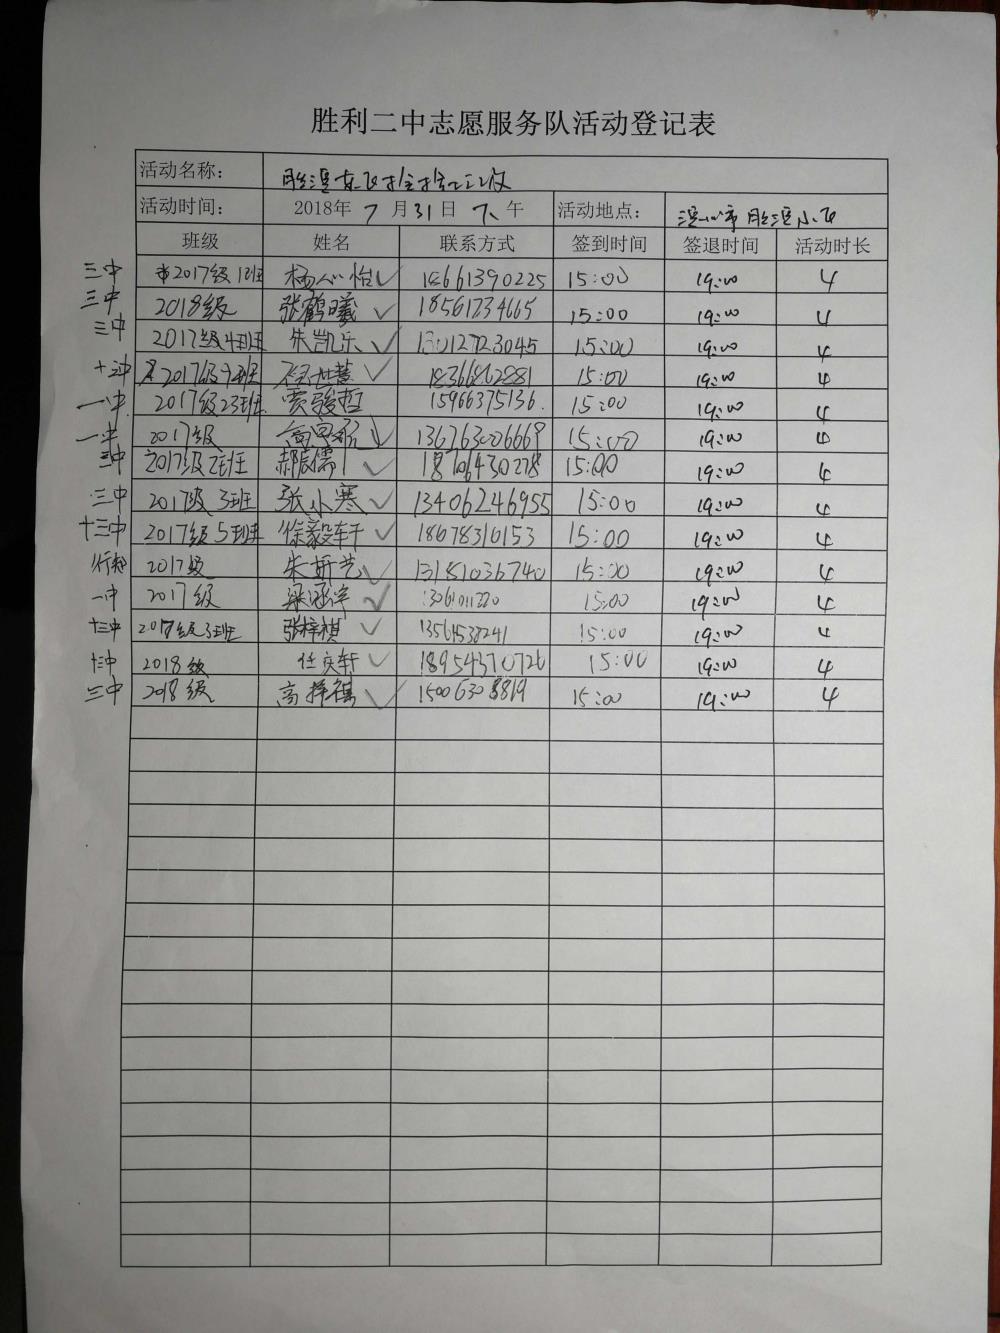 胜利二中志愿服务队活动登记表
活动名称：
活动时间： 2018年 7 月 31 日 下 午 活动地点： 胜滨小区
班级 姓名 联系方式 签到时间 签退时间 活动时长
三中 2017级1班 杨心怡 18661390225 15:00 19:00 4
三中 2018级 张鹤曦 18561734665 15:00 19:00 4
三中 2017级4班 朱凯乐 13012723045 15:00 19:00 4
2017级 18366862881 15:00 19:00 4
一中 2017级23班 贾骏哲 15966375136 15:00 19:00 4
一中 2017级 13676300666 15:00 19:00 4
三中 2017级2班 郝宸儒 18706430278 15:00 19:00 4
三中 2017级3班 张小寒 13406246955 15:00 19:00 4
十三中 2017级5班 徐毅轩 18678316153 15:00 19:00 4
2017级 朱妍艺 13181036740 15:00 19:00 4
一中 2017级 15:00 19:00 4
十三中 2017级3班 张梓祺 13561538241 15:00 19:00 4
十三中 2018级 任庆轩 18954370726 15:00 19:00 4
三中 2018级 高祥禧 15006308819 15:00 19:00 4